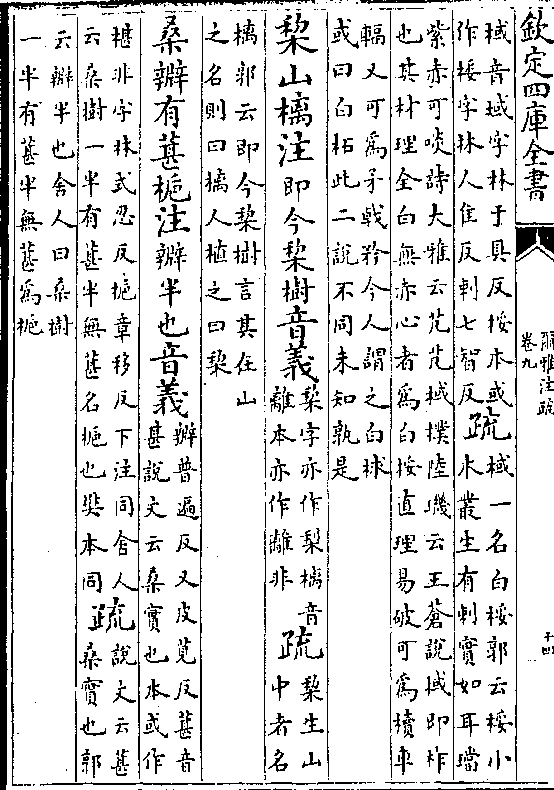 欽定四庫全書
爾雅注疏
卷九
十四
棫音域字林于㒷反桵本或
作㮃字林人隹反刺七智反
疏
棫一名白桵郭云桵小
木叢生有刺實如耳璫
紫赤可啖詩大雅云芃芃棫樸陸璣云王蒼說棫即柞
也其材理全白無赤心者為白桵直理易破可為櫝車
輻又可為矛戟矜今人謂之白梂
或曰白柘此二說不同未知孰是
梨山樆注即今梨樹音義
梨字亦作棃樆音
離本亦作離非
疏
梨生山
中者名
樆郭云即今梨樹言其在山
之名則曰樆人植之曰梨
桑辧有葚梔注辧半也音義
辧普遍反又皮莧反葚音
甚說文云桑實也本或作
椹非字林式忍反梔章移反下注同舍人
云桑樹一半有葚半無葚名梔也樊本同
疏
說文云葚
桑實也郭
云辧半也舍人曰桑樹
一半有葚半無葚為梔